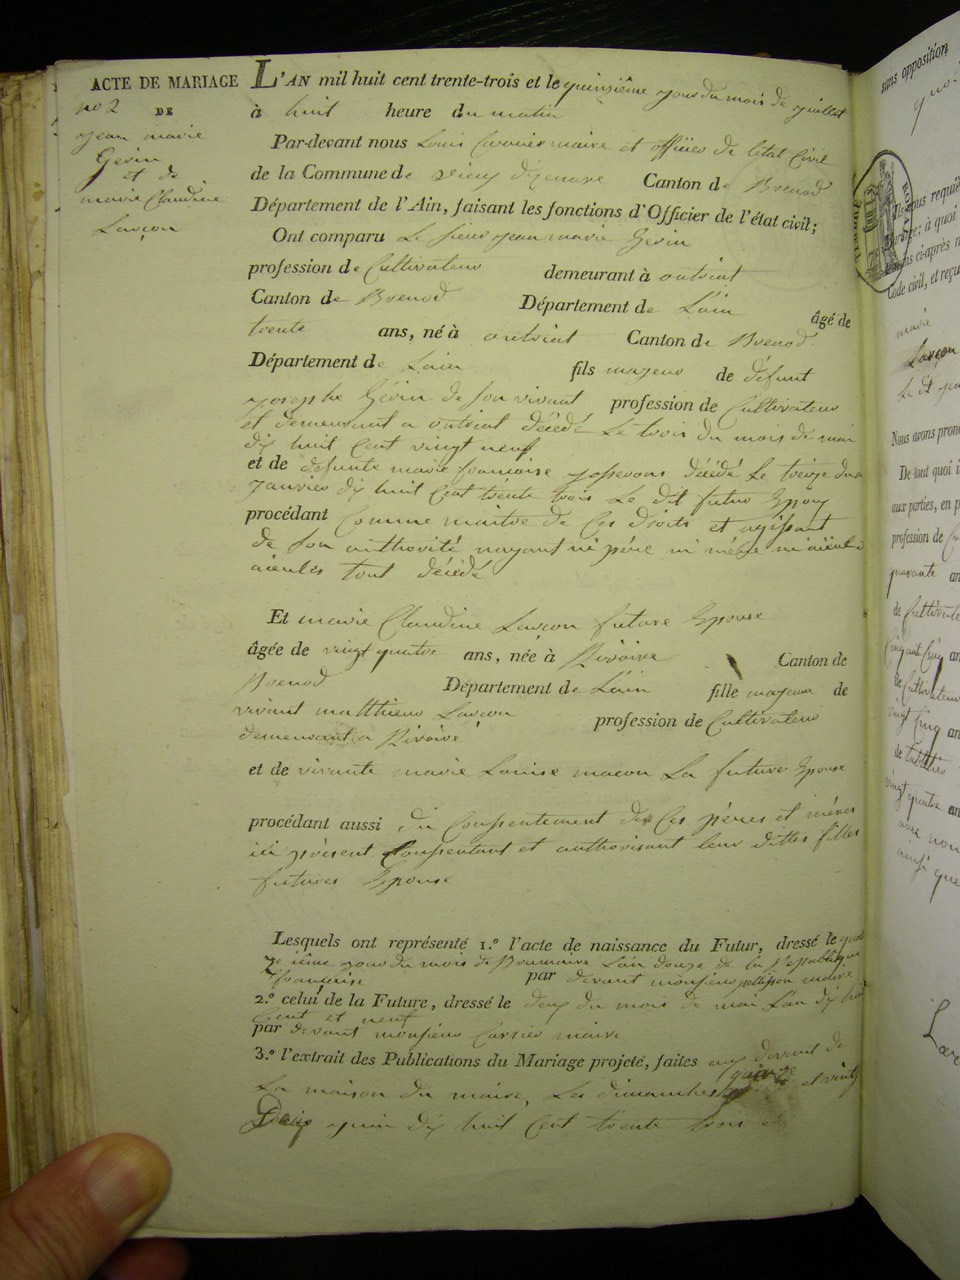 ACTE DE MARIAGE
no 2
DE
jean marie
Gévin
et de
marie Claudine
Larçon
L'AN mil huit cent trente-trois et le quinzième jour du mois de juillet
à huit heure du matin
Par-devant nous Louis Carrier maire et officier de letat Civil
de la Commune de vieux dizenave Canton de Brenod
Département de l'Ain, faisant les fonctions d'Officier de l'état civil;
Ont comparu Le sieur jean marie Gévin
profession de Cultivateur demeurant à outriat
Canton de Brenod Département de Lain âgé de
trente ans, né à outriat Canton de Brenod
Département de Lain fils majeur de défunt
josephe Gévin de son vivant profession de Cultivateur
et demeurant a outriat décédé Le trois du mois de mai
dix huit Cent vingt neuf
et de defunte marie francoise décédé Le treize du
janvier dix huit Cent trente trois Le dit futur Epoux
procédant Comme maitre de Ces droits et agissant
de son authorité nayant ni père ni mère ni
aieules tout décédé
Et marie Claudine Larçon future Epouse
âgée de vingt quatre ans, née à Rivoire Canton de
Brenod Département de Lain fille majeur de
vivant matthieu Larçon profession de Cultivateur
demeurant a Rivoire
et de vivante marie Louise macon La future Epouse
procédant aussi du Consentement de Ces pères et mères
ici présent Consentant et authorisant leur dittes filles
futures Epouse
Lesquels ont représenté 1.º l'acte de naissance du Futur, dressé le
jour du mois de Brumaire Lan douze de la Republique
francaise par devant monsieur pellisson maire
2.º celui de la Future, dressé le deux du mois de mai Lan dix huit
Cent et neuf
par devant monsieur Carrier maire
3.º l'extrait des Publications du Mariage projeté, faites aux devant de
La maison du maire, Les dimanches quinze et vingt
juin dix huit Cent trente trois
sans opposition
Code civil, et reçu
marie
Larçon
Nous avons pron
De tout quoi i
aux parties, en p
profession de
quarante an
de Cultivateur
Cinquante Cinq an
de Cultivateur
vingt Cinq an
vingt quatre an